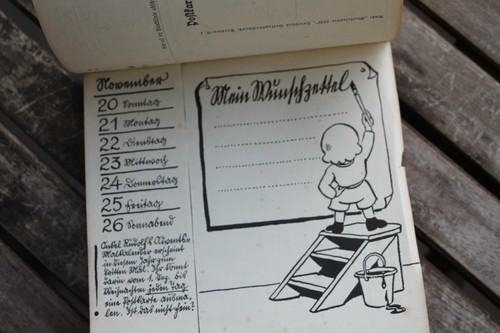 Postkar
November
20 Sonntag
21 Montag
22 Dienstag
23 Mittwoch
24 Donnerstag
25 Freitag
26 Sonnabend
Onkel Rudolfs Advents-
Malkalender erscheint
in diesem Jahr zum
dritten Mal. Ihr könnt
darin vom 1. Dez. bis
Weihnachten jeden Tag
eine Postkarte ausma-
len. Ist das nicht fein?
Mein Wunschzettel